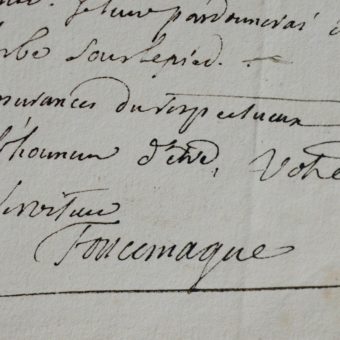 je lui pardonnerai
sous le pied.
assurances du respectueux
l'honneur d'être, Votre
serviteur
Foncemagne